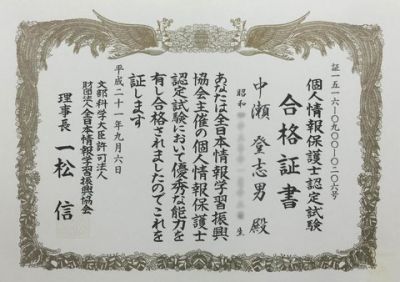 証一五一六一〇九〇〇一〇二〇六号
個人情報保護士認定試験
合格証書
中瀬登志男 殿
昭和 生
あなたは全日本情報学習振興
協会主催の個人情報保護士
認定試験において優秀な能力を
有し合格されましたのでこれを
証します
平成二十一年九月六日
文部科学大臣許可法人
財団法人全日本情報学習振興協会
理事長 一松 信